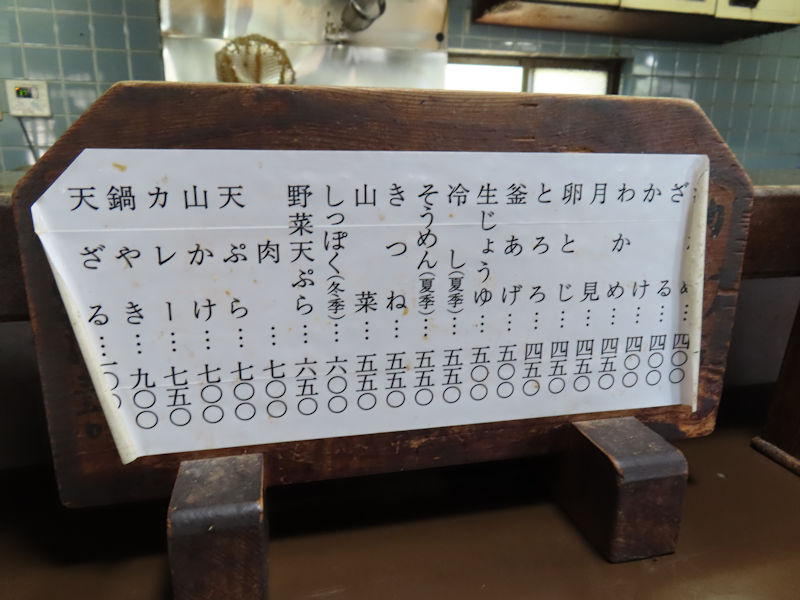 め…四〇〇
ざる…四〇〇
かけ…四〇〇
わかめ…四五〇
月見…四五〇
卵とじ…四五〇
とろろ…四五〇
釜あげ…五〇〇
生じょうゆ…五〇〇
冷し(夏季)…五五〇
そうめん(夏季)…五五〇
きつね…五五〇
山菜…五五〇
しっぽく(冬季)…六〇〇
野菜天ぷら…六五〇
肉…七〇〇
天ぷら…七〇〇
山かけ…七〇〇
カレー…七五〇
鍋やき…九〇〇
天ざる…一〇〇